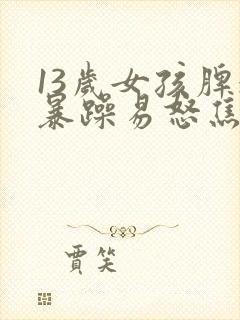 13歲女孩脾
暴躁易怒焦
賈笑